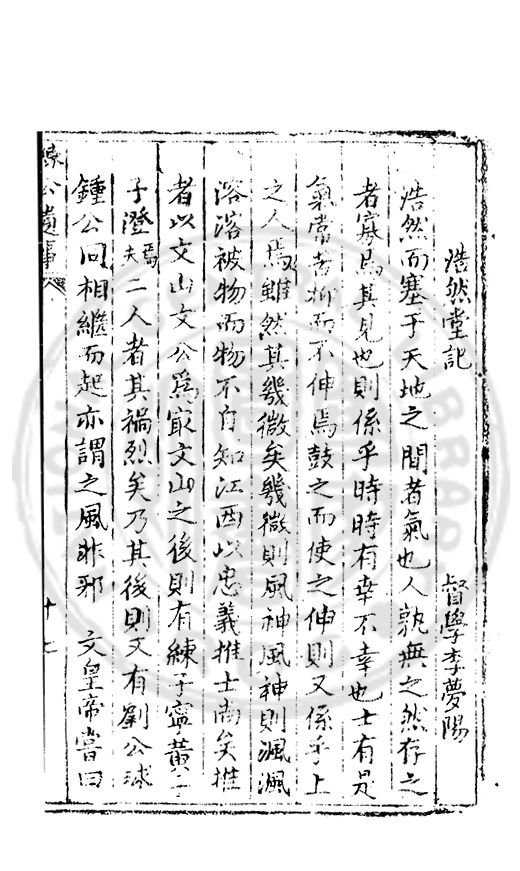 浩然堂記
督學李夢陽
浩然而塞于天地之間者氣也人孰無之然存之
者寡焉其見也則係乎時時有幸不幸也士有是
氣常苦抑而不伸焉鼓之而使之伸則又係乎上
之人焉雖然其幾微矣幾微則風神風神則渢渢
溶溶被物而物不自知江西以忠義推士尚矣推
者以文山文公爲㝡文山之後則有練子寧黃
子澄焉夫二人者其禍烈矣乃其後則又有劉公球
鍾公同相繼而起亦謂之風非邪 文皇帝嘗曰
公遺事
十七